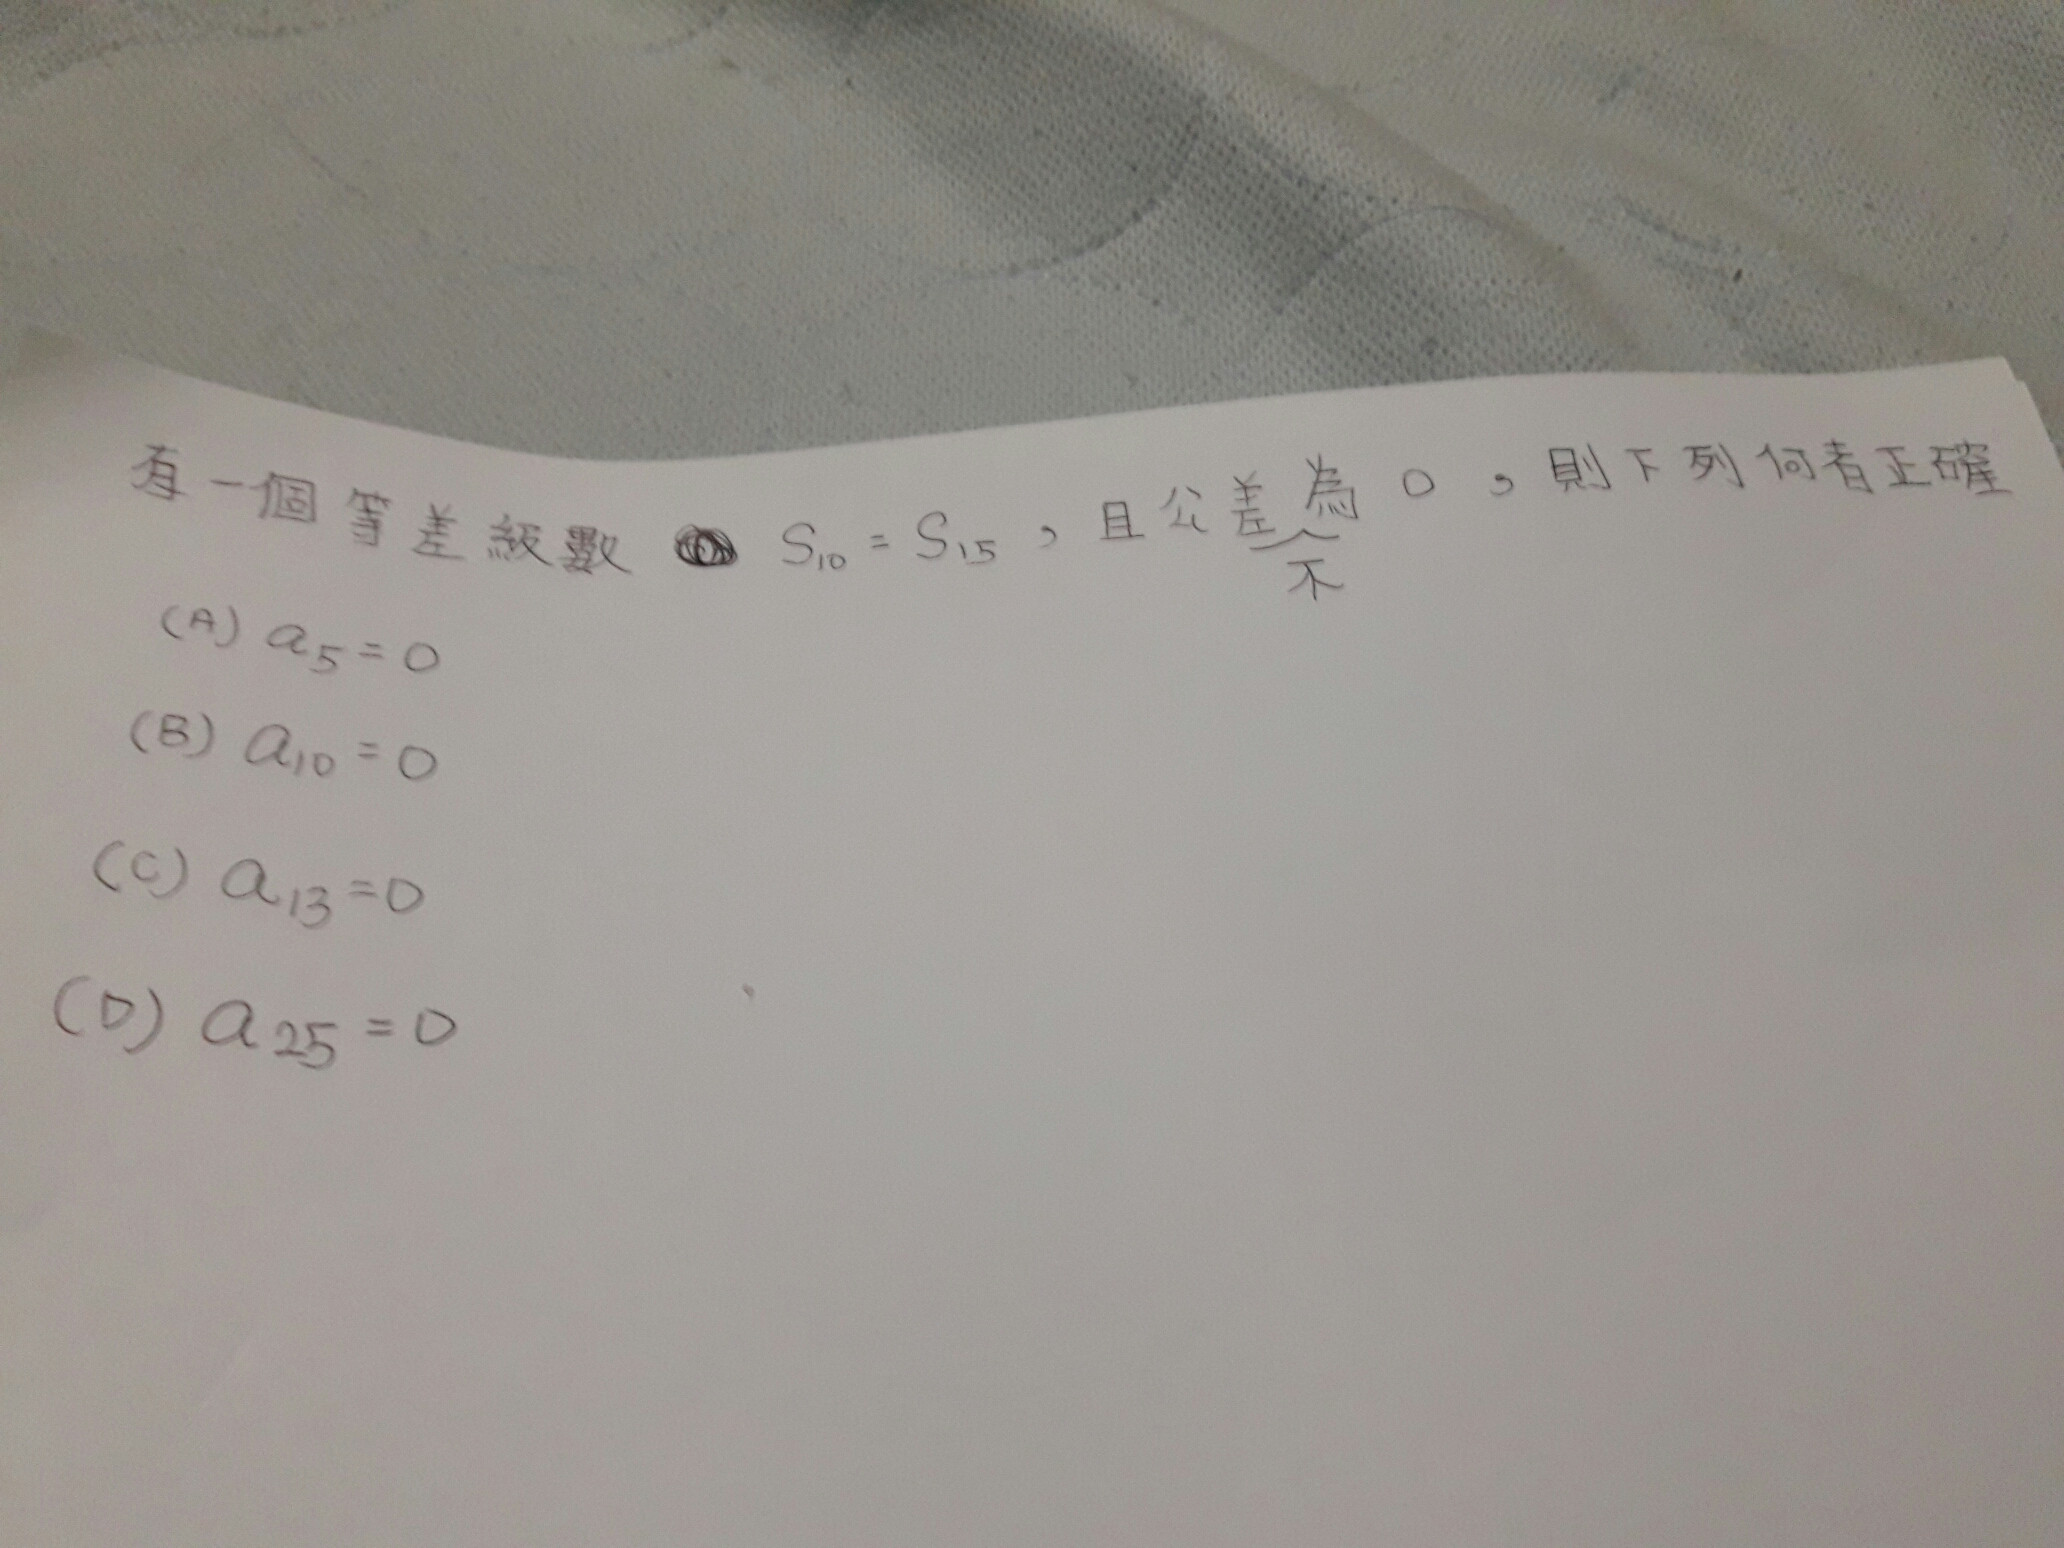 有一個等差級數 S₁₀ = S₁₅，且公差不為0，則下列何者正確
(A) a₅ = 0
(B) a₁₀ = 0
(C) a₁₃ = 0
(D) a₂₅ = 0